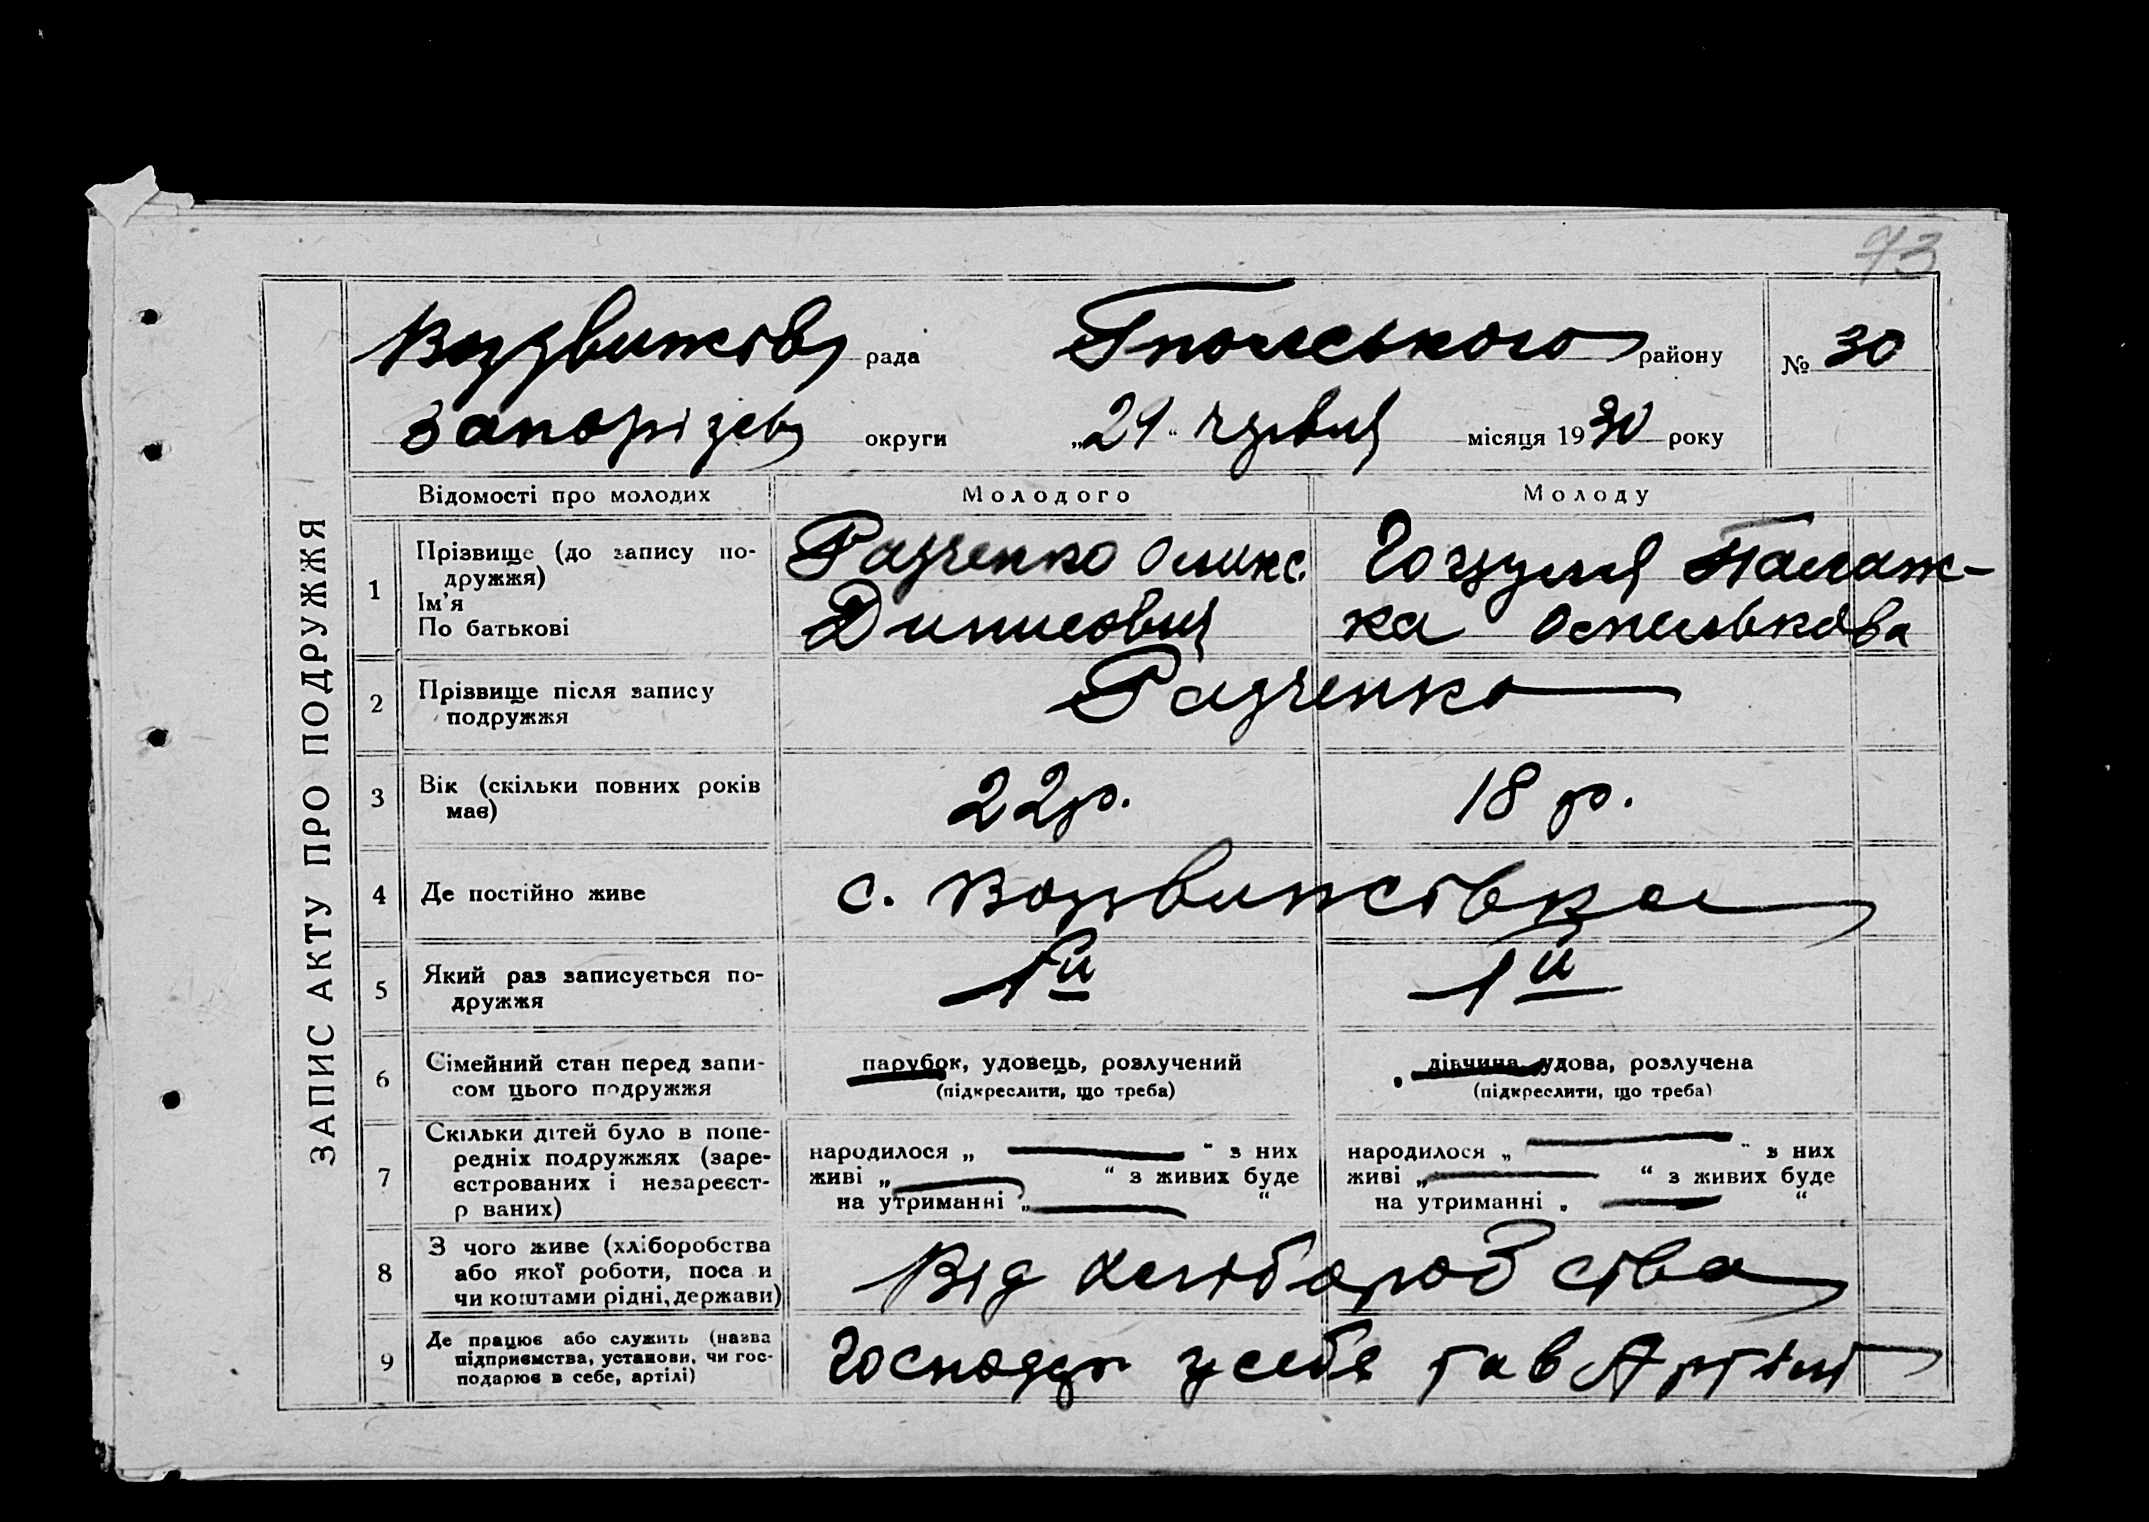 73
ЗАПИС АКТУ ПРО ПОДРУЖЖЯ
рада Гполського району № 30
округи „21“ червця місяця 1930 року
Відомості про молодих Молодого Молоду
1 Прізвище (до запису по-
дружжя)
Ім'я
По батькові
Радченко Оликс.
Денисовиц
Палаж-
ка
2 Прізвище після запису
подружжя
Радченко
3 Вік (скільки повних років
має)
22 р. 18 р.
4 Де постійно живе
с. Воздвижствка
5 Який раз записується по-
дружжя
1й 1й
6 Сімейний стан перед запи-
сом цього подружжя
парубок, удовець, розлучений
(підкреслити, що треба)
дівчина, удова, розлучена
(підкреслити, що треба)
7 Скільки дітей було в попе-
редніх подружжях (заре-
єстрованих і незареєст-
р ваних)
народилося „ “ з них
живі „ “ з живих буде
на утриманні „ “
народилося „ “ з них
живі „ “ з живих буде
на утриманні „ “
8 З чого живе (хліборобства
або якої роботи, поса и
чи коштами рідні, держави)
Від хліборобства
9 Де працює або служить (назва
підприємства, установи, чи гос-
подарює в себе, артілі)
Господар у себе та в Артілі